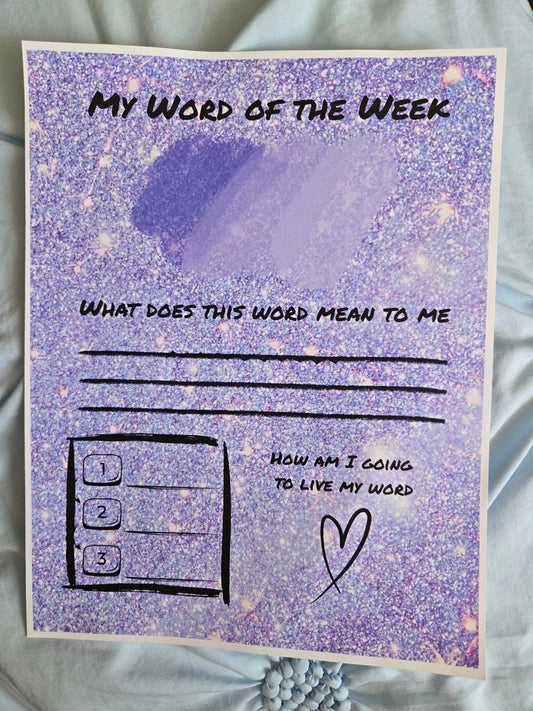 My Word of the Week
What does this word mean to me
1
2
3
How am I going
to live my word